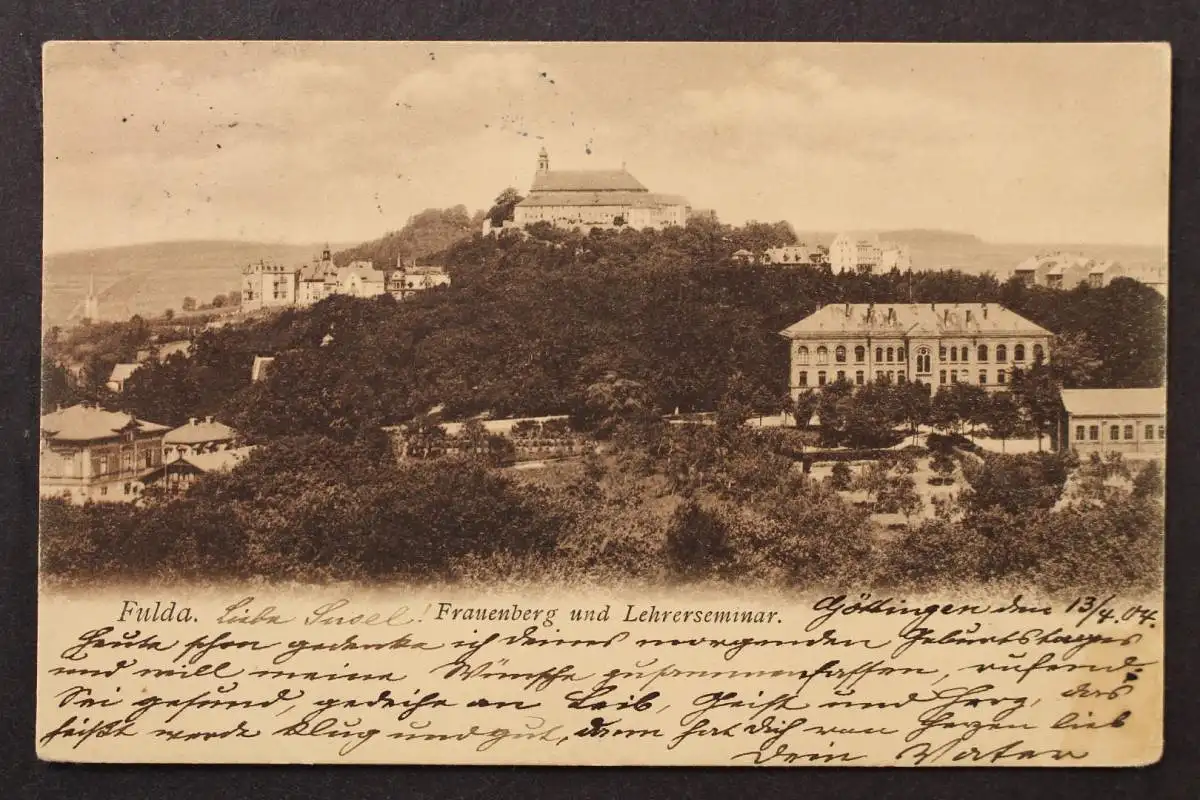 Fulda. Liebe Susel! Frauenberg und Lehrerseminar. Göttingen den 13/4. 04.
Heute schon gedenke ich deines morgenden Geburtstages
und will meine Wünsche zusammenfassen, rufend:
Sei gesund, gedeihe an Leib, Geist und Herz, das
heißt werde klug und gut, dann hat dich von Herzen lieb
Dein Vater